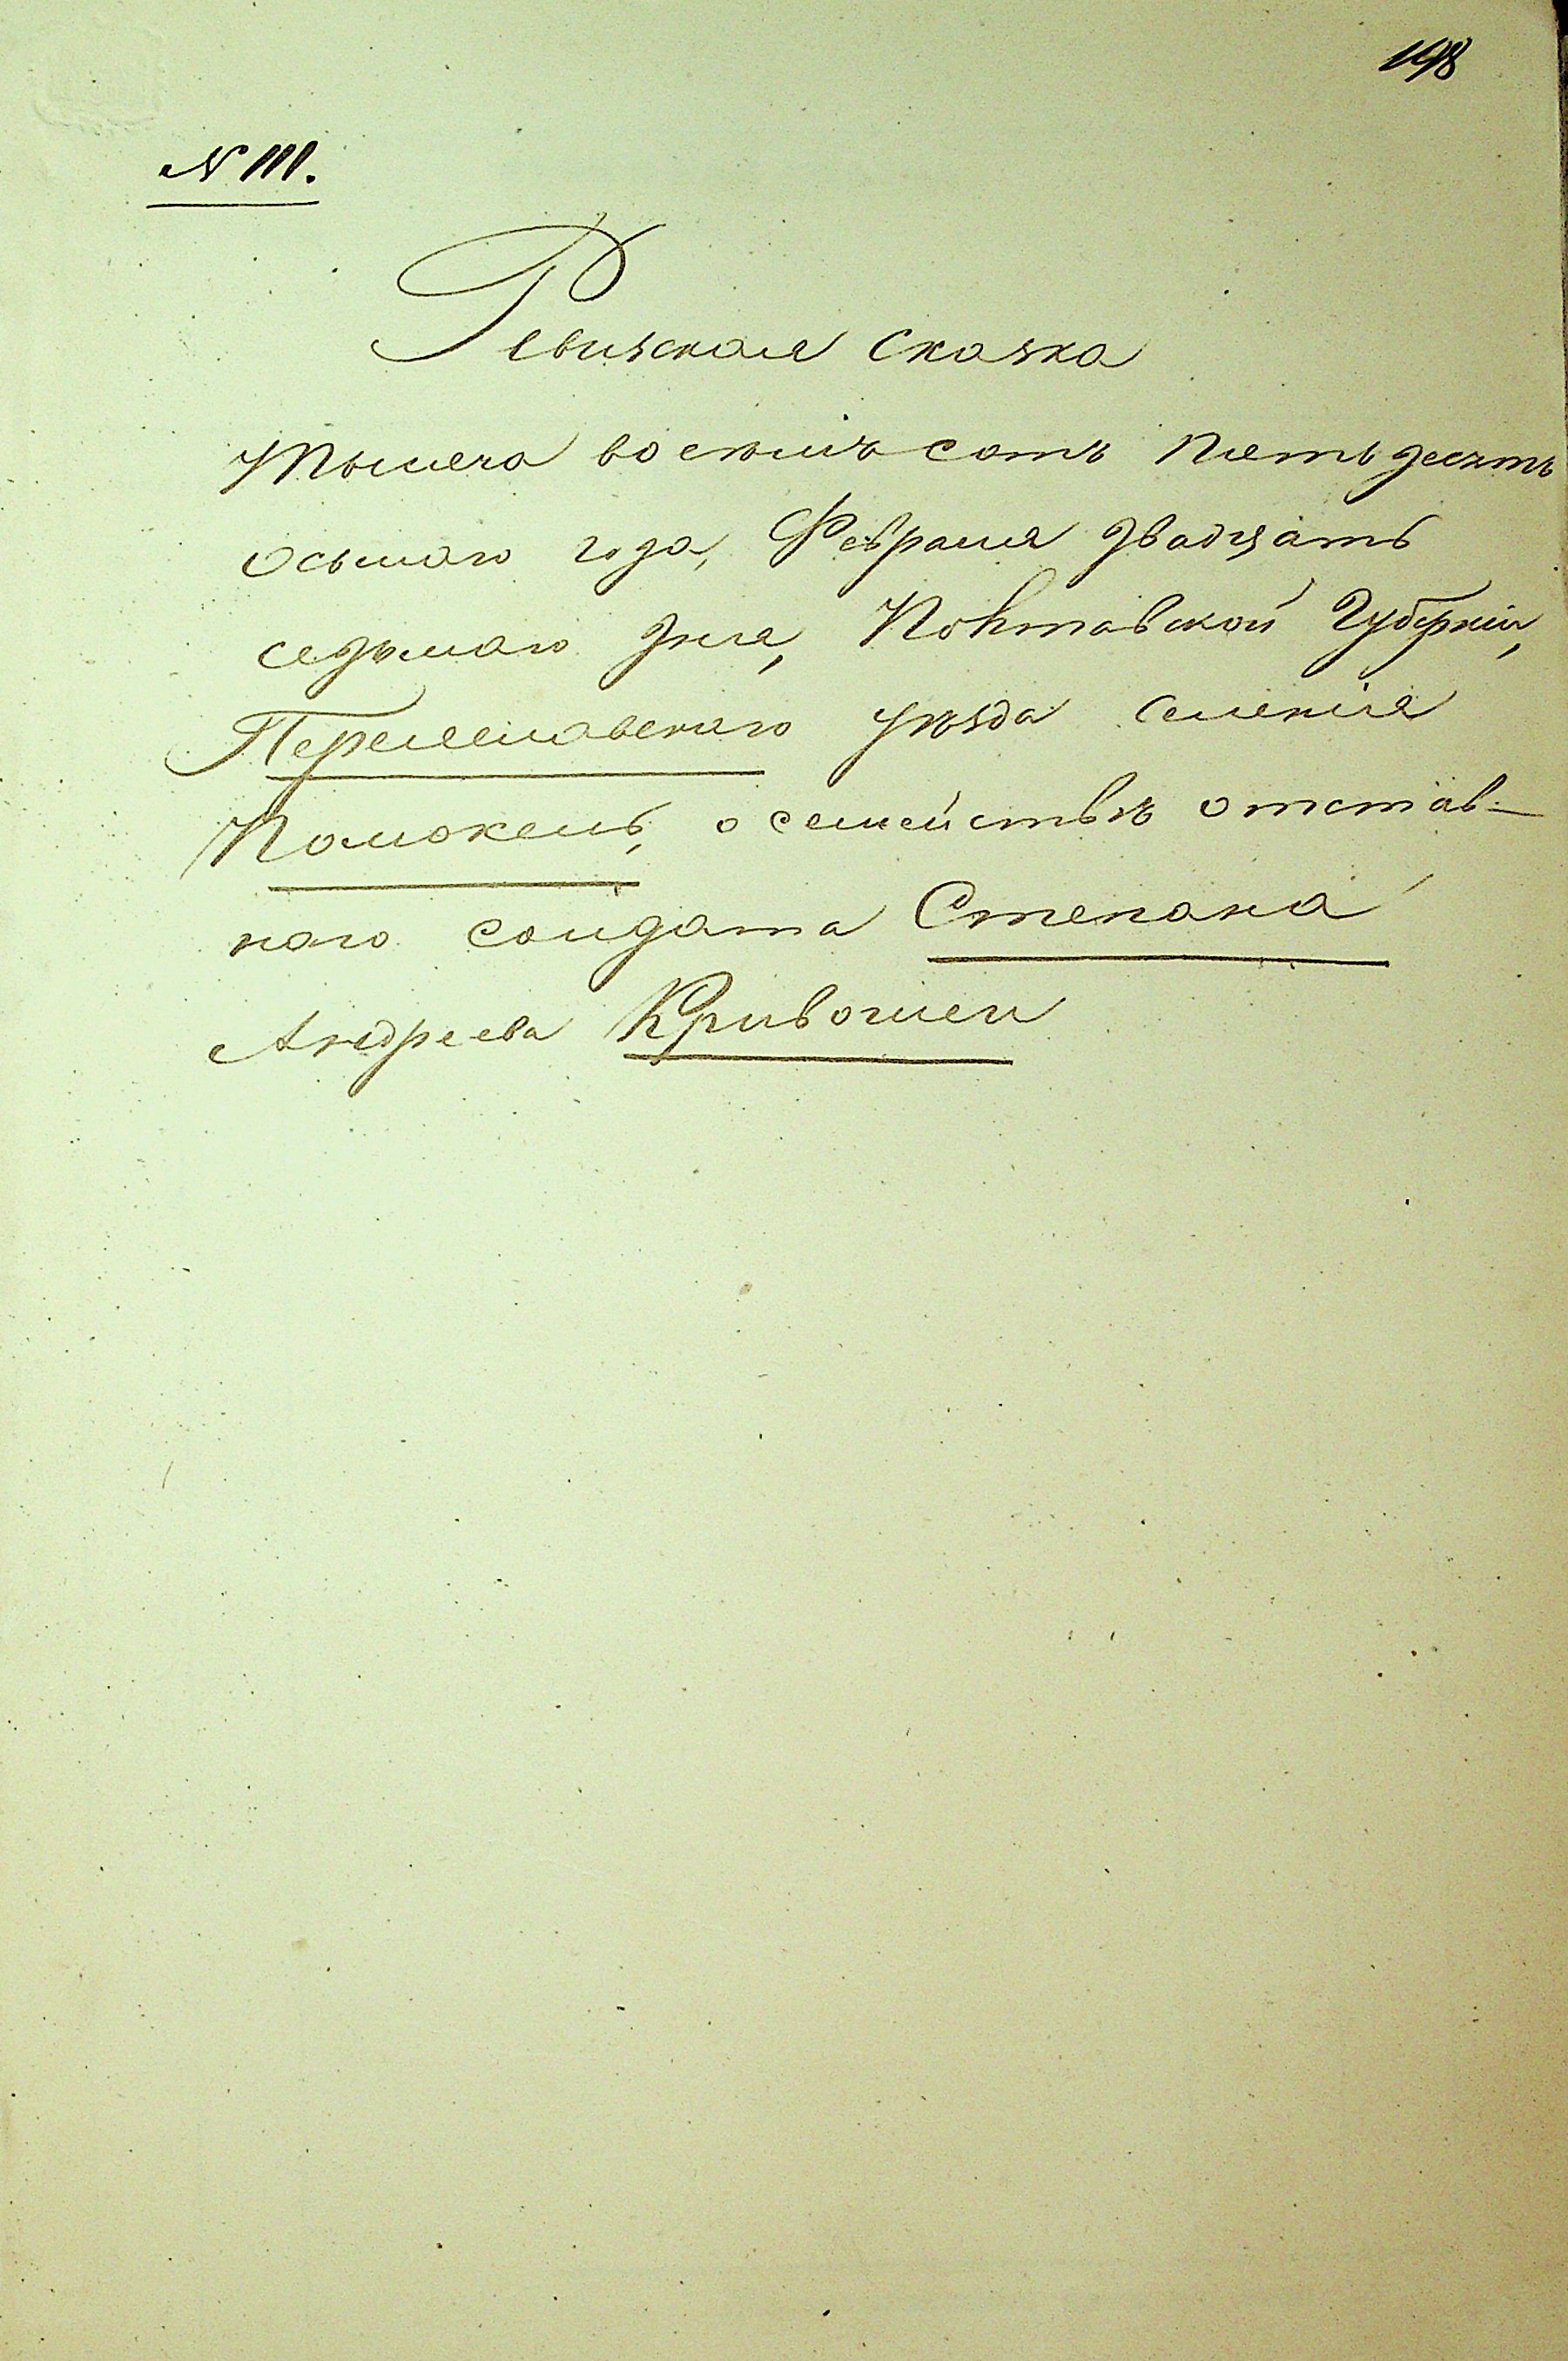 148
№ 111.
Ревизская сказка
Тысяча восемъ сотъ пятьдесятъ
осьмаго года, Февраля двадцать
седьмаго дня, Полтавской Губерніи,
Переяславскаго уѣзда селенія
Помокель, о семействѣ отстав-
наго солдата Степана
Андреева Кривошеи